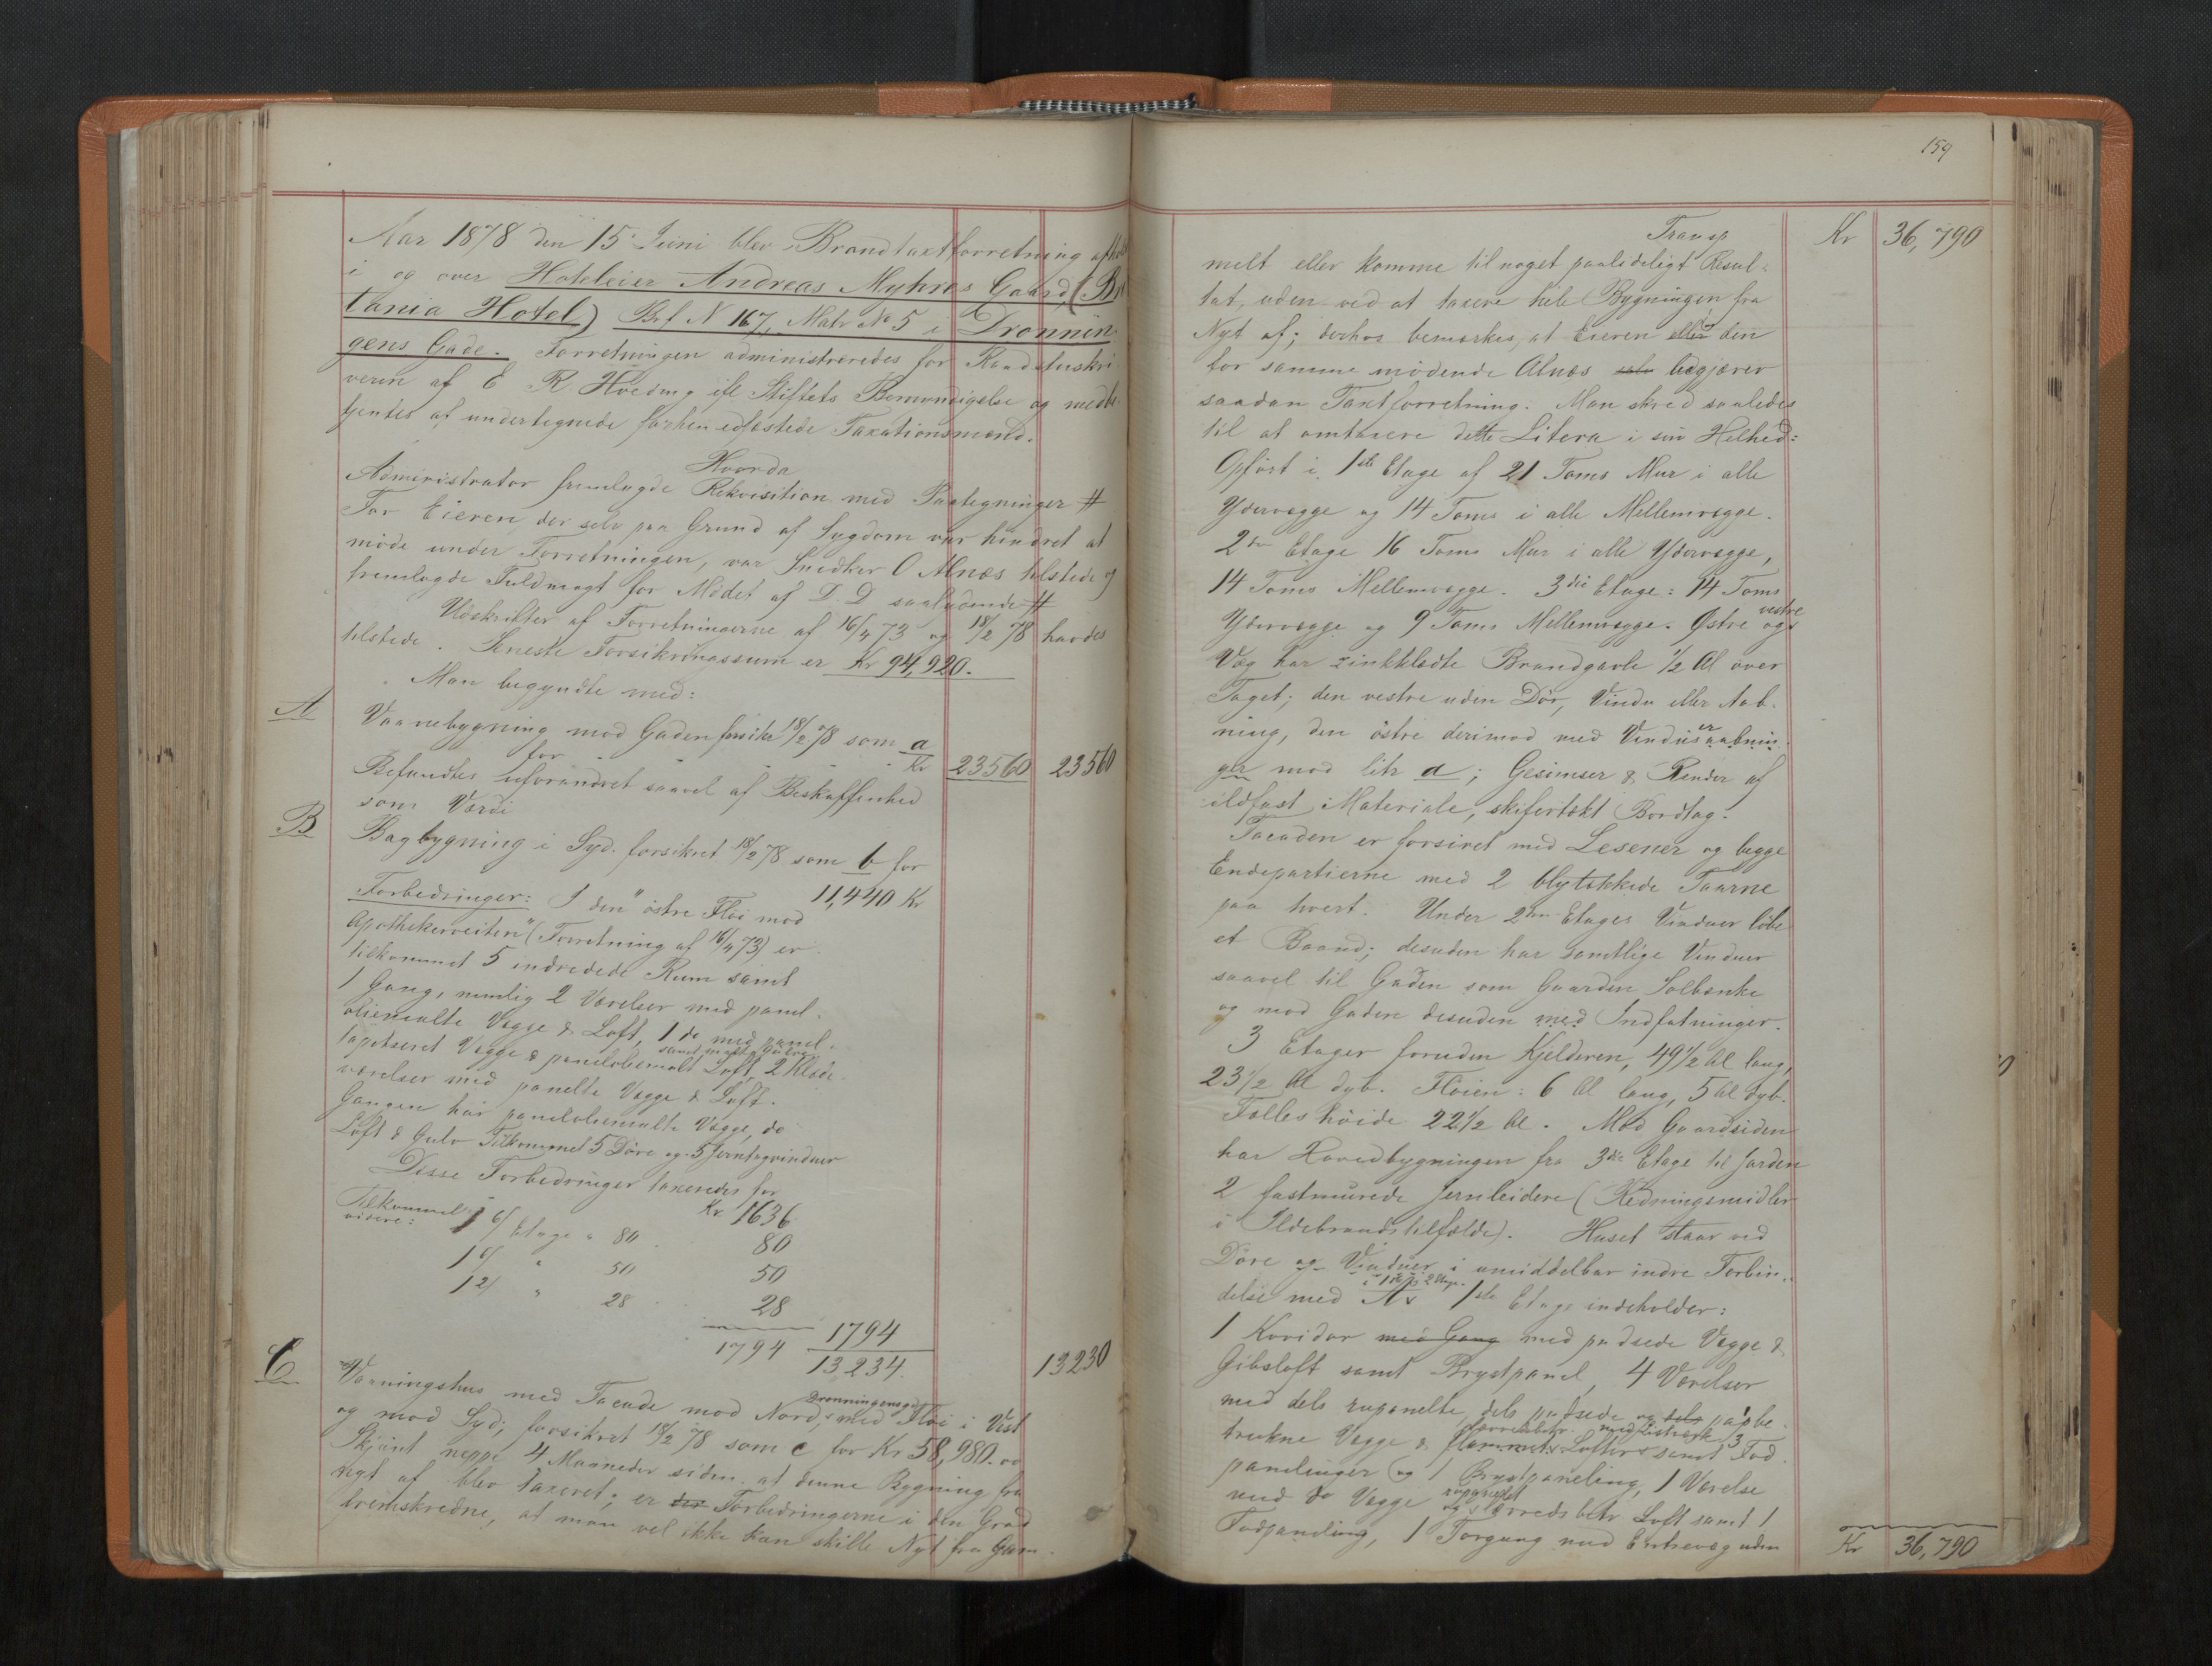 Aar 1878 den 15 Juni blev Brandtaxtforretning afhol
i og over Hoteleier Andreas Myhres Gaard, (Bri
tania Hotel) Brf N 167, Matr No 5 i Dronnin
gens Gade. Forretningen administreredes for Raadstuskri
veren af E R. Hveding ifl Stiftets Bemyndigelse og medbe
tjentes af undertegnede forhen edfæstede Taxationsmænd.
Hvorda
Administrator fremlagde Rekvisition med Paategninger #
For Eieren, der selv paa Grund af Sygdom var hindret at
møde under Forretningen, var Snedker O Alnæs tilstede og
fremlagde Fuldmagt for Mødet af D. D saalydende #
Udskrifter af Forretningerne af 16/4 73 og 18/2 78 havdes
tilstede. Seneste Forsikringssum er Kr 94,920.
Man begyndte med:
A Vaanebygning mod Gaden forsikr 18/2 78 som a
for Kr 23560 23560
Befandtes uforandret saavel af Beskaffenhed
som Værdi
B Bagbygning i Syd. forsikret 18/2 78 som b for
11,440 Kr
Forbedringer: I den "østre Fløi mod
Apothekerveiten" (Forretning af 16/4 73) er
tilkommet 5 indredede Rum samt
1 Gang, nemlig 2 Værelser med panel.
oliemalte Vægge & Loft, 1 do med panel.
tapetseret Vægge & paneloliemalt Loft samt malt Gulv, 2 Klæde
værelser med panelte Vægge & Loft.
Gangen har paneloliemalte Vægge, do
Loft & Gulv Tilkommet 5 Døre og 5 Jerntagvinduer
Disse Forbedringer taxeredes for
Kr 1636
Tilkommet
videre: 1 6/ Etage " 80 80
1 6/ " 50 50
1 2/ " 28 28
1794 1794
13,234. 13230
C Vaaningshus med Facade mod Nord, Dronningensgd med Fløi i Vest
og mod Syd; forsikret 18/2 78 som c for Kr 58,980. 00
Skjønt neppe 4 Maaneder siden at denne Bygning fra
Nyt af blev taxeret, er der Forbedringerne i den Grad
fremskredne, at man vel ikke kan skille Nyt fra Gam-
159
Transp Kr 36,790
melt eller komme til noget paalideligt Resul-
tat, uden ved at taxere hele Bygningen fra
Nyt af; derhos bemærkes, at Eieren eller den
for samme mødende Alnæs selv begjærer
saadan Taxtforretning. Man skred saaledes
til at omtaxere dette Litera i sin Helhed:
Opført i 1ste Etage af 21 Toms Mur i alle
Ydervægge og 14 Toms i alle Mellemvægge.
2den Etage 16 Toms Mur i alle Ydervægge,
14 Toms Mellemvægge. 3die Etage: 14 Toms
Ydervægge og 9 Toms Mellemvægge. Østre og vestre
Væg har zinkklædte Brandgavle 1/2 Al over
Taget; den vestre uden Dør, Vindu eller Aab-
ning, den østre derimod med Vinduesaabnin
ger mod litr a; Gesimser & Render af
ildfast Materiale, skifertækt Bordtag.
Facaden er forsiret med Lesener og begge
Endepartierne med 2 blytækkede Taarne
paa hvert. Under 2den Etages Vinduer løbe
et Baand; desuden har samtlige Vinduer
saavel til Gaden som Gaarden Solbænke
og mod Gaden desuden med Indfatninger.
3 Etager foruden Kjelderen, 49 1/2 Al lang,
23 1/2 Al dyb. Fløien: 6 Al lang, 5 Al dyb.
Fælles høide 22 1/2 Al. Mod Gaardsiden
har Hovedbygningen fra 3die Etage til Jorden
2 fastmurede Jernleidere (Redningsmidler
i Ildebrandstilfælde). Huset staar ved
Døre og Vinduer i umiddelbar indre Forbin-
delse med A. 1ste Etage indeholder:
1 Koridor med Gang med pudsede Vægge &
Gibsloft samt Brystpanel, 4 Værelser
med dels rupanelte, dels pudsede og dels papbe
trukne Vægge & Lofter samt 3 Fod
panelinger og 1 Brystpaneling, 1 Værelse
med do Vægge rupanelet og lærredsbetr Loft samt 1
Fodpaneling, 1 Forgang med Entrevæg uden
Kr 36,790